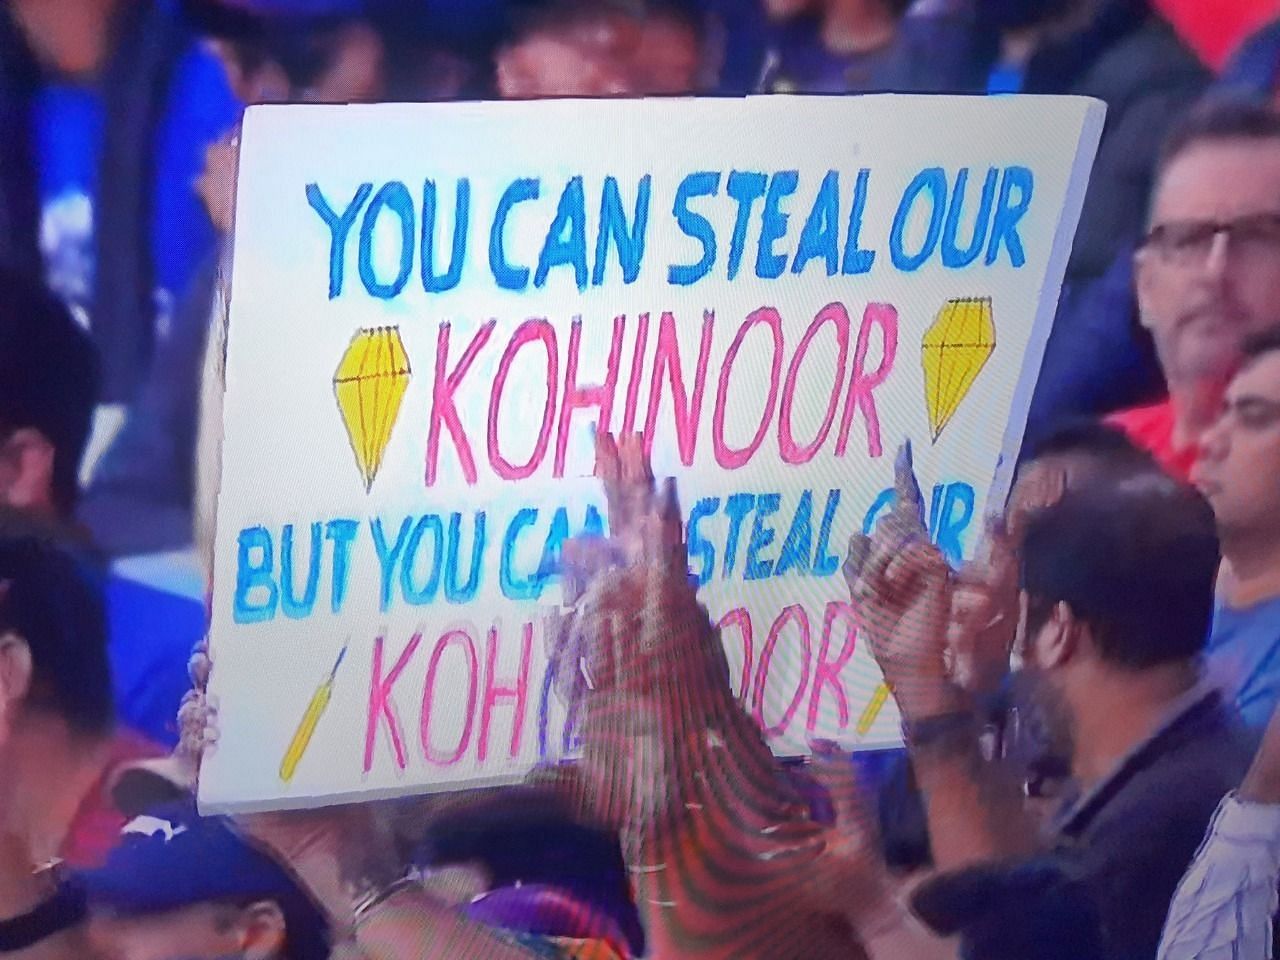 YOU CAN STEAL OUR
KOHINOOR
BUT YOU STEAL OUR